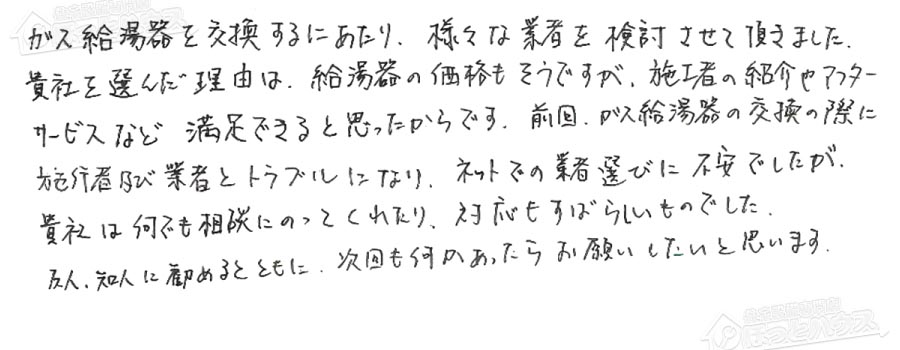 ガス給湯器を交換するにあたり、様々な業者を検討させて頂きました。
貴社を選んだ理由は、給湯器の価格もそうですが、施工者の紹介やアフター
サービスなど 満足できると思ったからです。前回、ガス給湯器の交換の際に
施行者及び業者とトラブルになり、ネットでの業者選びに不安でしたが、
貴社は何でも相談にのってくれたり、対応もすばらしいものでした。
友人、知人に勧めるとともに、次回も何かあったらお願いしたいと思います。
ほっとハウス